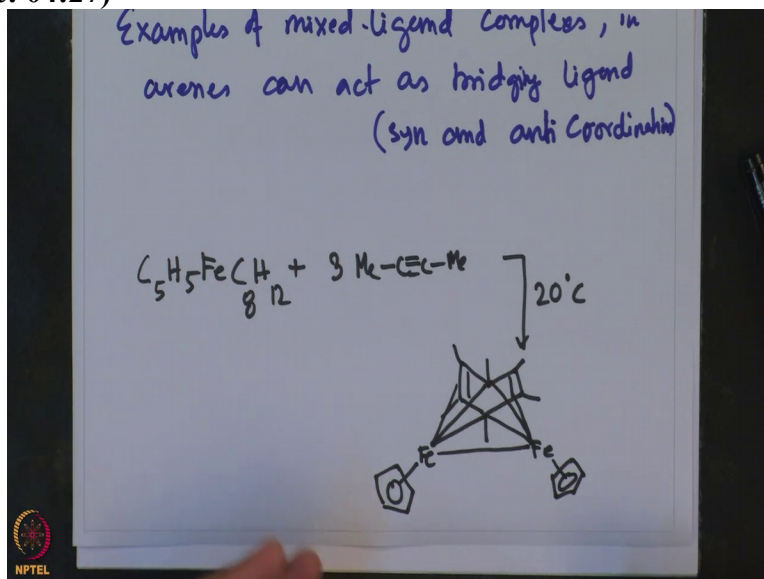 Examples of mixed-ligand Complexes, in
arenes can act as bridging ligand
(Syn and anti Coordination)
C5H5-FeC8H12 + 3 Me-C≡C-Me
20°C
Fe Fe
NPTEL